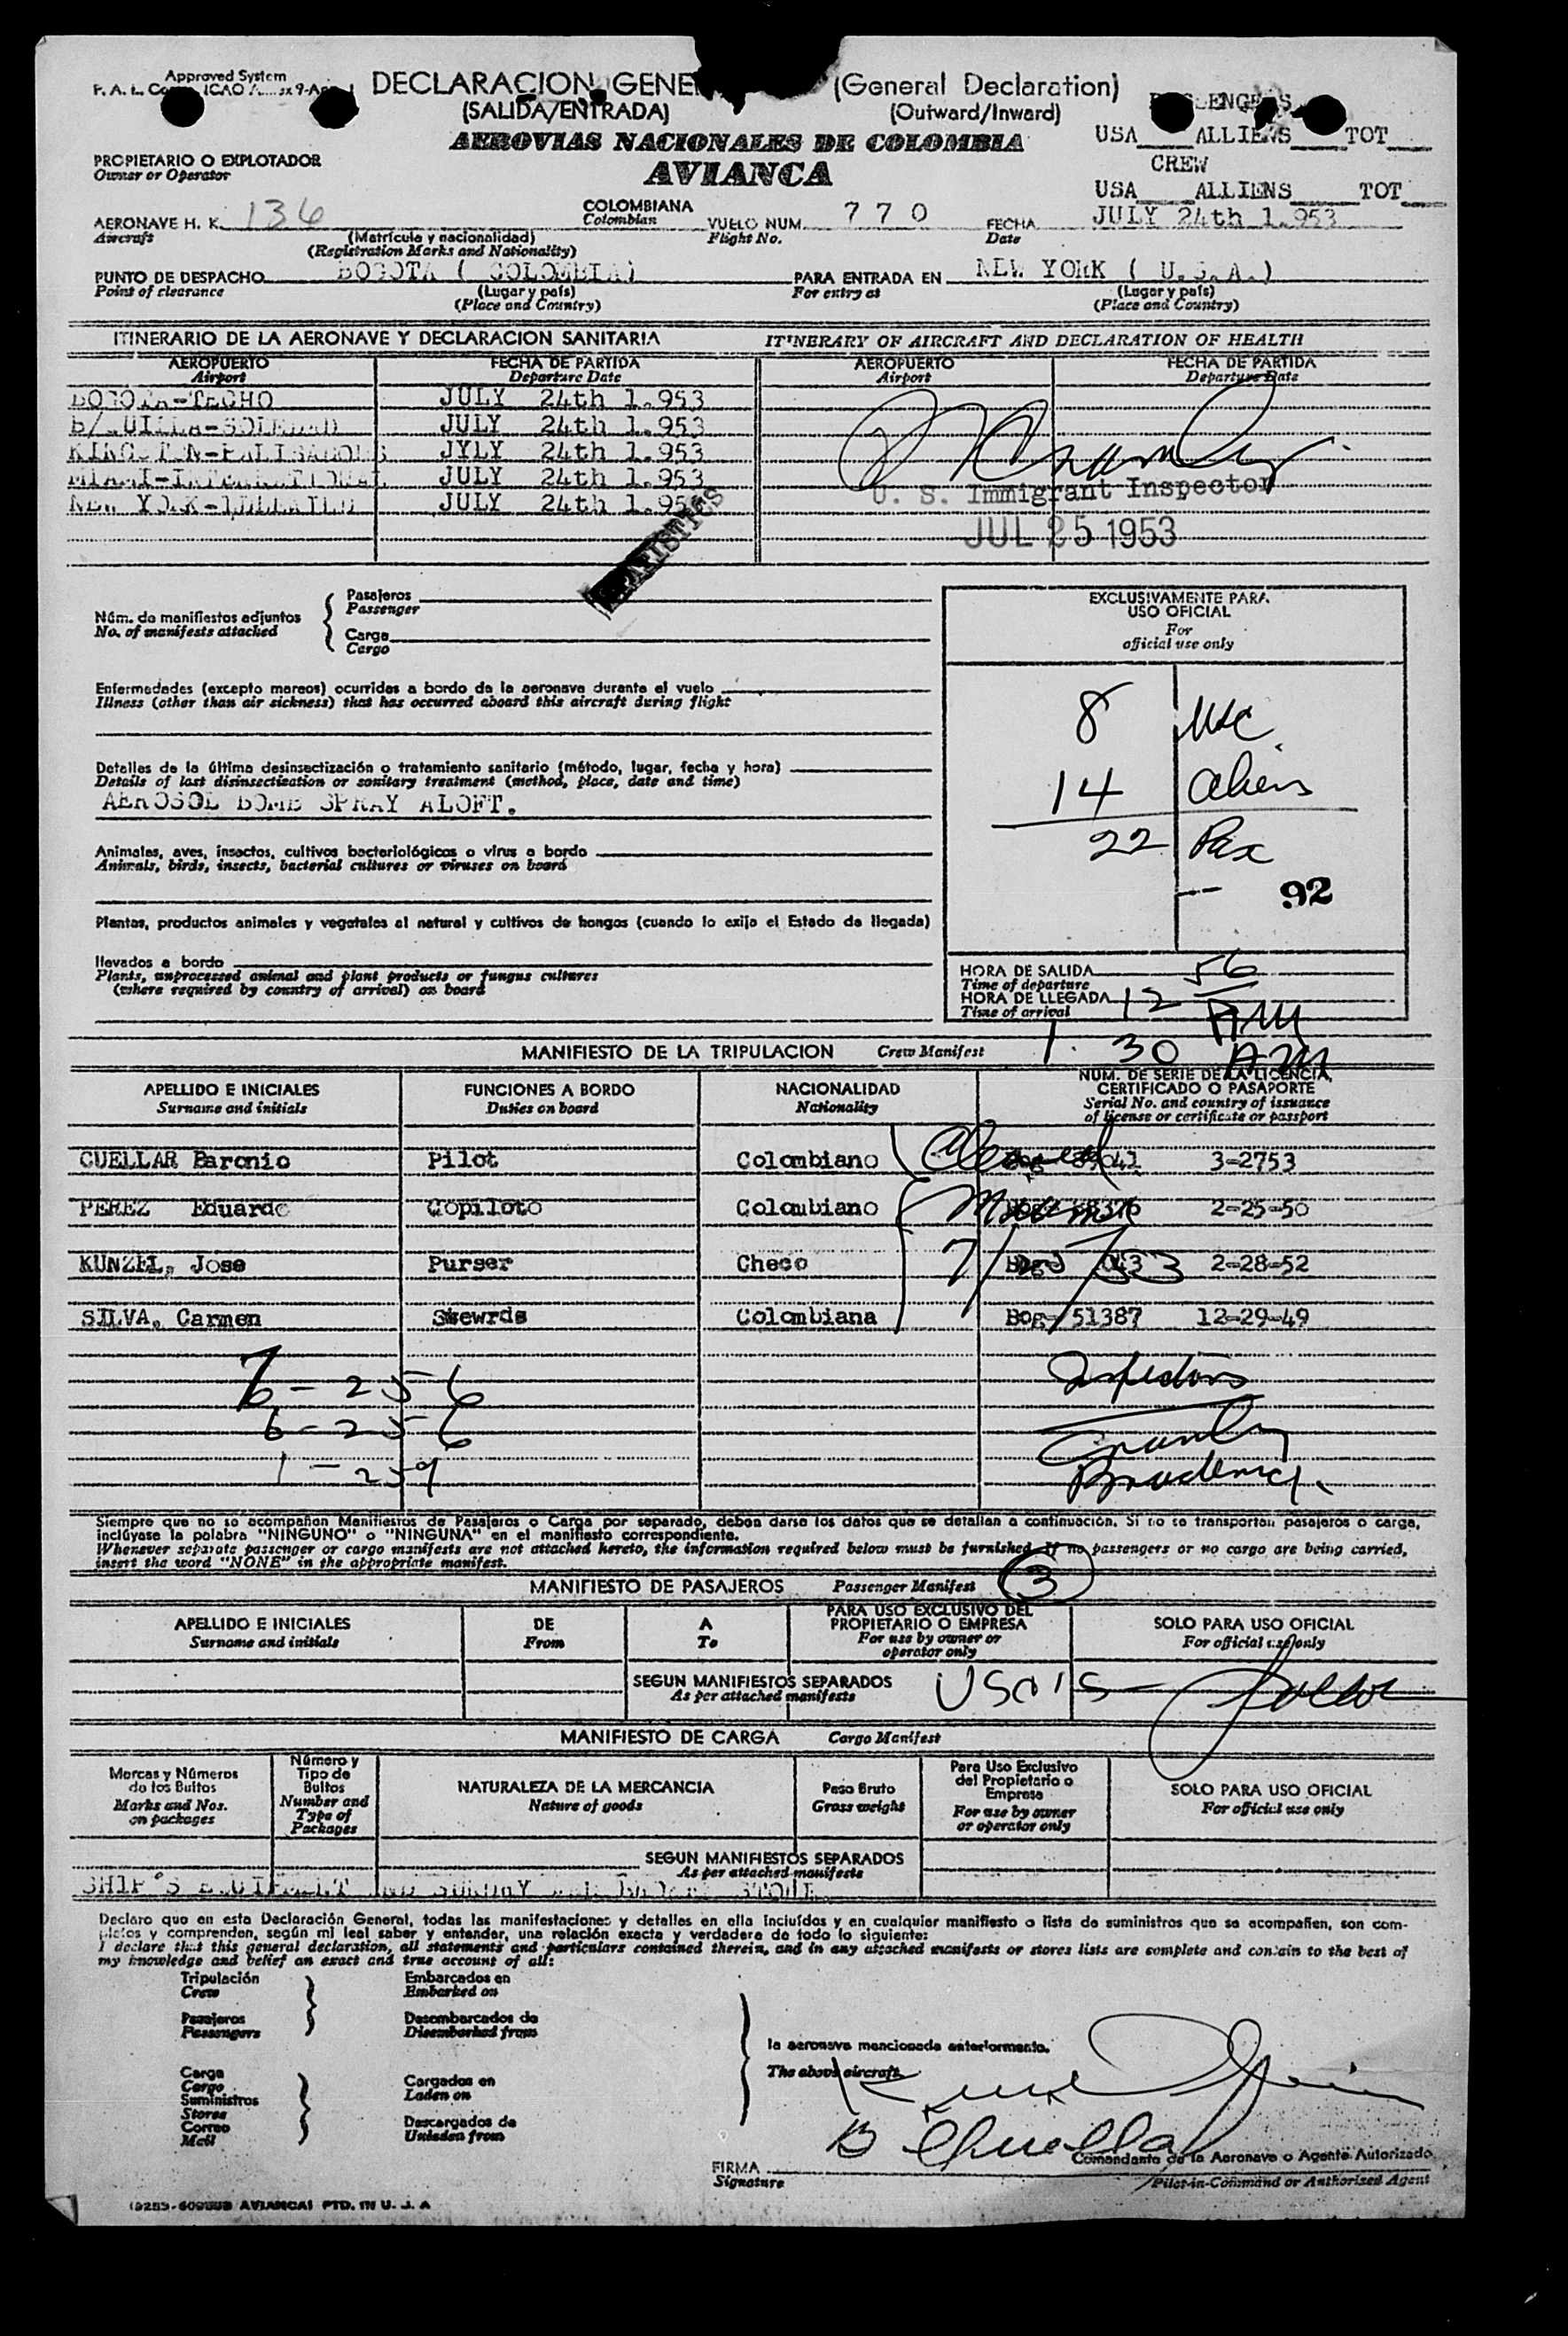 Approved System
DECLARACION GENE (General Declaration)
(SALIDA/ENTRADA) (Outward/Inward)
AEROVIAS NACIONALES DE COLOMBIA
AVIANCA
USA ALLIENS TOT
CREW
USA ALLIENS TOT
PROPIETARIO O EXPLOTADOR
Owner or Operator
AERONAVE H. K. 136 COLOMBIANA VUELO NUM. 770 FECHA JULY 24th 1.953
Aircraft (Matrícula y nacionalidad) Colombian Flight No. Date
(Registration Marks and Nationality)
PUNTO DE DESPACHO BOGOTA ( COLOMBIA) PARA ENTRADA EN NEW YORK ( U.S.A.)
Point of clearance (Lugar y país) For entry at (Lugar y país)
(Place and Country) (Place and Country)
ITINERARIO DE LA AERONAVE Y DECLARACION SANITARIA ITINERARY OF AIRCRAFT AND DECLARATION OF HEALTH
AEROPUERTO FECHA DE PARTIDA AEROPUERTO FECHA DE PARTIDA
Airport Departure Date Airport Departure Date
BOGOTA-TECHO JULY 24th 1.953
B/QUILLA-SOLEDAD JULY 24th 1.953
KINGSTON-PALISADOES JYLY 24th 1.953
MIAMI-INTERNATIONAL JULY 24th 1.953
NEW YORK-IDLEWILD JULY 24th 1.953
U. S. Immigrant Inspector
JUL 25 1953
STATISTICS
Núm. de manifiestos adjuntos
No. of manifests attached
Pasajeros
Passenger
Carga
Cargo
EXCLUSIVAMENTE PARA
USO OFICIAL
For
official use only
8 USC
14 Aliens
22 Pax
92
Enfermedades (excepto mareos) ocurridas a bordo de la aeronave durante el vuelo
Illness (other than air sickness) that has occurred aboard this aircraft during flight
Detalles de la última desinsectización o tratamiento sanitario (método, lugar, fecha y hora)
Details of last disinsectization or sanitary treatment (method, place, date and time)
AEROSOL BOMB SPRAY ALOFT.
Animales, aves, insectos, cultivos bacteriológicos o virus a bordo
Animals, birds, insects, bacterial cultures or viruses on board
Plantas, productos animales y vegetales al natural y cultivos de hongos (cuando lo exija el Estado de llegada)
llevados a bordo
Plants, unprocessed animal and plant products or fungus cultures
(where required by country of arrival) on board
HORA DE SALIDA
Time of departure
HORA DE LLEGADA 12 56 AM
Time of arrival
1. 30 AM
MANIFIESTO DE LA TRIPULACION Crew Manifest
APELLIDO E INICIALES FUNCIONES A BORDO NACIONALIDAD NUM. DE SERIE DE LA LICENCIA, CERTIFICADO O PASAPORTE
Surname and initials Duties on board Nationality Serial No. and country of issuance of license or certificate or passport
CUELLAR Baronio Pilot Colombiano 3-2753
PEREZ Eduardo Copiloto Colombiano 2-25-50
KUNZEL, Jose Purser Checo 2-28-52
SILVA, Carmen Stewrds Colombiana Bog- 51387 12-29-49
6 - 256
6 - 256
1 - 259
Inspectors
Siempre que no se acompañen Manifiestos de Pasajeros o Carga por separado, deben darse los datos que se detallan a continuación. Si no se transportan pasajeros o carga,
inclúyase la palabra "NINGUNO" o "NINGUNA" en el manifiesto correspondiente.
Whenever separate passenger or cargo manifests are not attached hereto, the information required below must be furnished. If no passengers or no cargo are being carried,
insert the word "NONE" in the appropriate manifest.
MANIFIESTO DE PASAJEROS Passenger Manifest 3
APELLIDO E INICIALES DE A PARA USO EXCLUSIVO DEL PROPIETARIO O EMPRESA SOLO PARA USO OFICIAL
Surname and initials From To For use by owner or operator only For official use only
SEGUN MANIFIESTOS SEPARADOS
As per attached manifests
MANIFIESTO DE CARGA Cargo Manifest
Marcas y Números de los Bultos
Marks and Nos. on packages
Número y Tipo de Bultos
Number and Type of Packages
NATURALEZA DE LA MERCANCIA
Nature of goods
Peso Bruto
Gross weight
Para Uso Exclusivo del Propietario o Empresa
For use by owner or operator only
SOLO PARA USO OFICIAL
For official use only
SEGUN MANIFIESTOS SEPARADOS
As per attached manifests
SHIP'S EQUIPMENT AND SUNDRY
Declaro que en esta Declaración General, todas las manifestaciones y detalles en ella incluídos y en cualquier manifiesto o lista de suministros que se acompañen, son com-
pletos y comprenden, según mi leal saber y entender, una relación exacta y verdadera de todo lo siguiente:
I declare that this general declaration, all statements and particulars contained therein, and in any attached manifests or stores lists are complete and contain to the best of
my knowledge and belief an exact and true account of all:
Tripulación Embarcados en
Crew Embarked on
Pasajeros Desembarcados de
Passengers Disembarked from
la aeronave mencionada anteriormente.
The above aircraft.
Carga Cargados en
Cargo Laden on
Suministros
Stores
Correo Descargados de
Mail Unladen from
FIRMA Comandante de la Aeronave o Agente Autorizado
Signature Pilot-in-Command or Authorized Agent